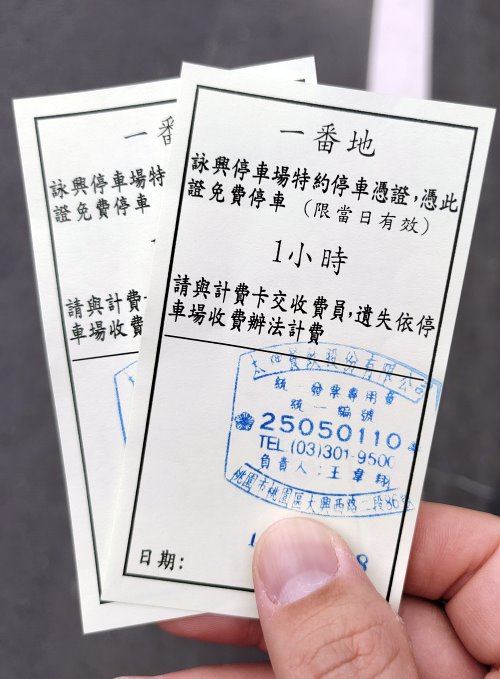 一番地
詠興停車場特約停車憑證,憑此
證免費停車(限當日有效)
1小時
請與計費卡交收費員,遺失依停
車場收費辦法計費
股份有限公司
統一發票專用章
統一編號
25050110
TEL(03)301-9500
負責人:王韋翔
桃園市桃園區大興西路二段86號
日期:
8
一番
詠興停車場特
證免費停車
請與計費
車場收費